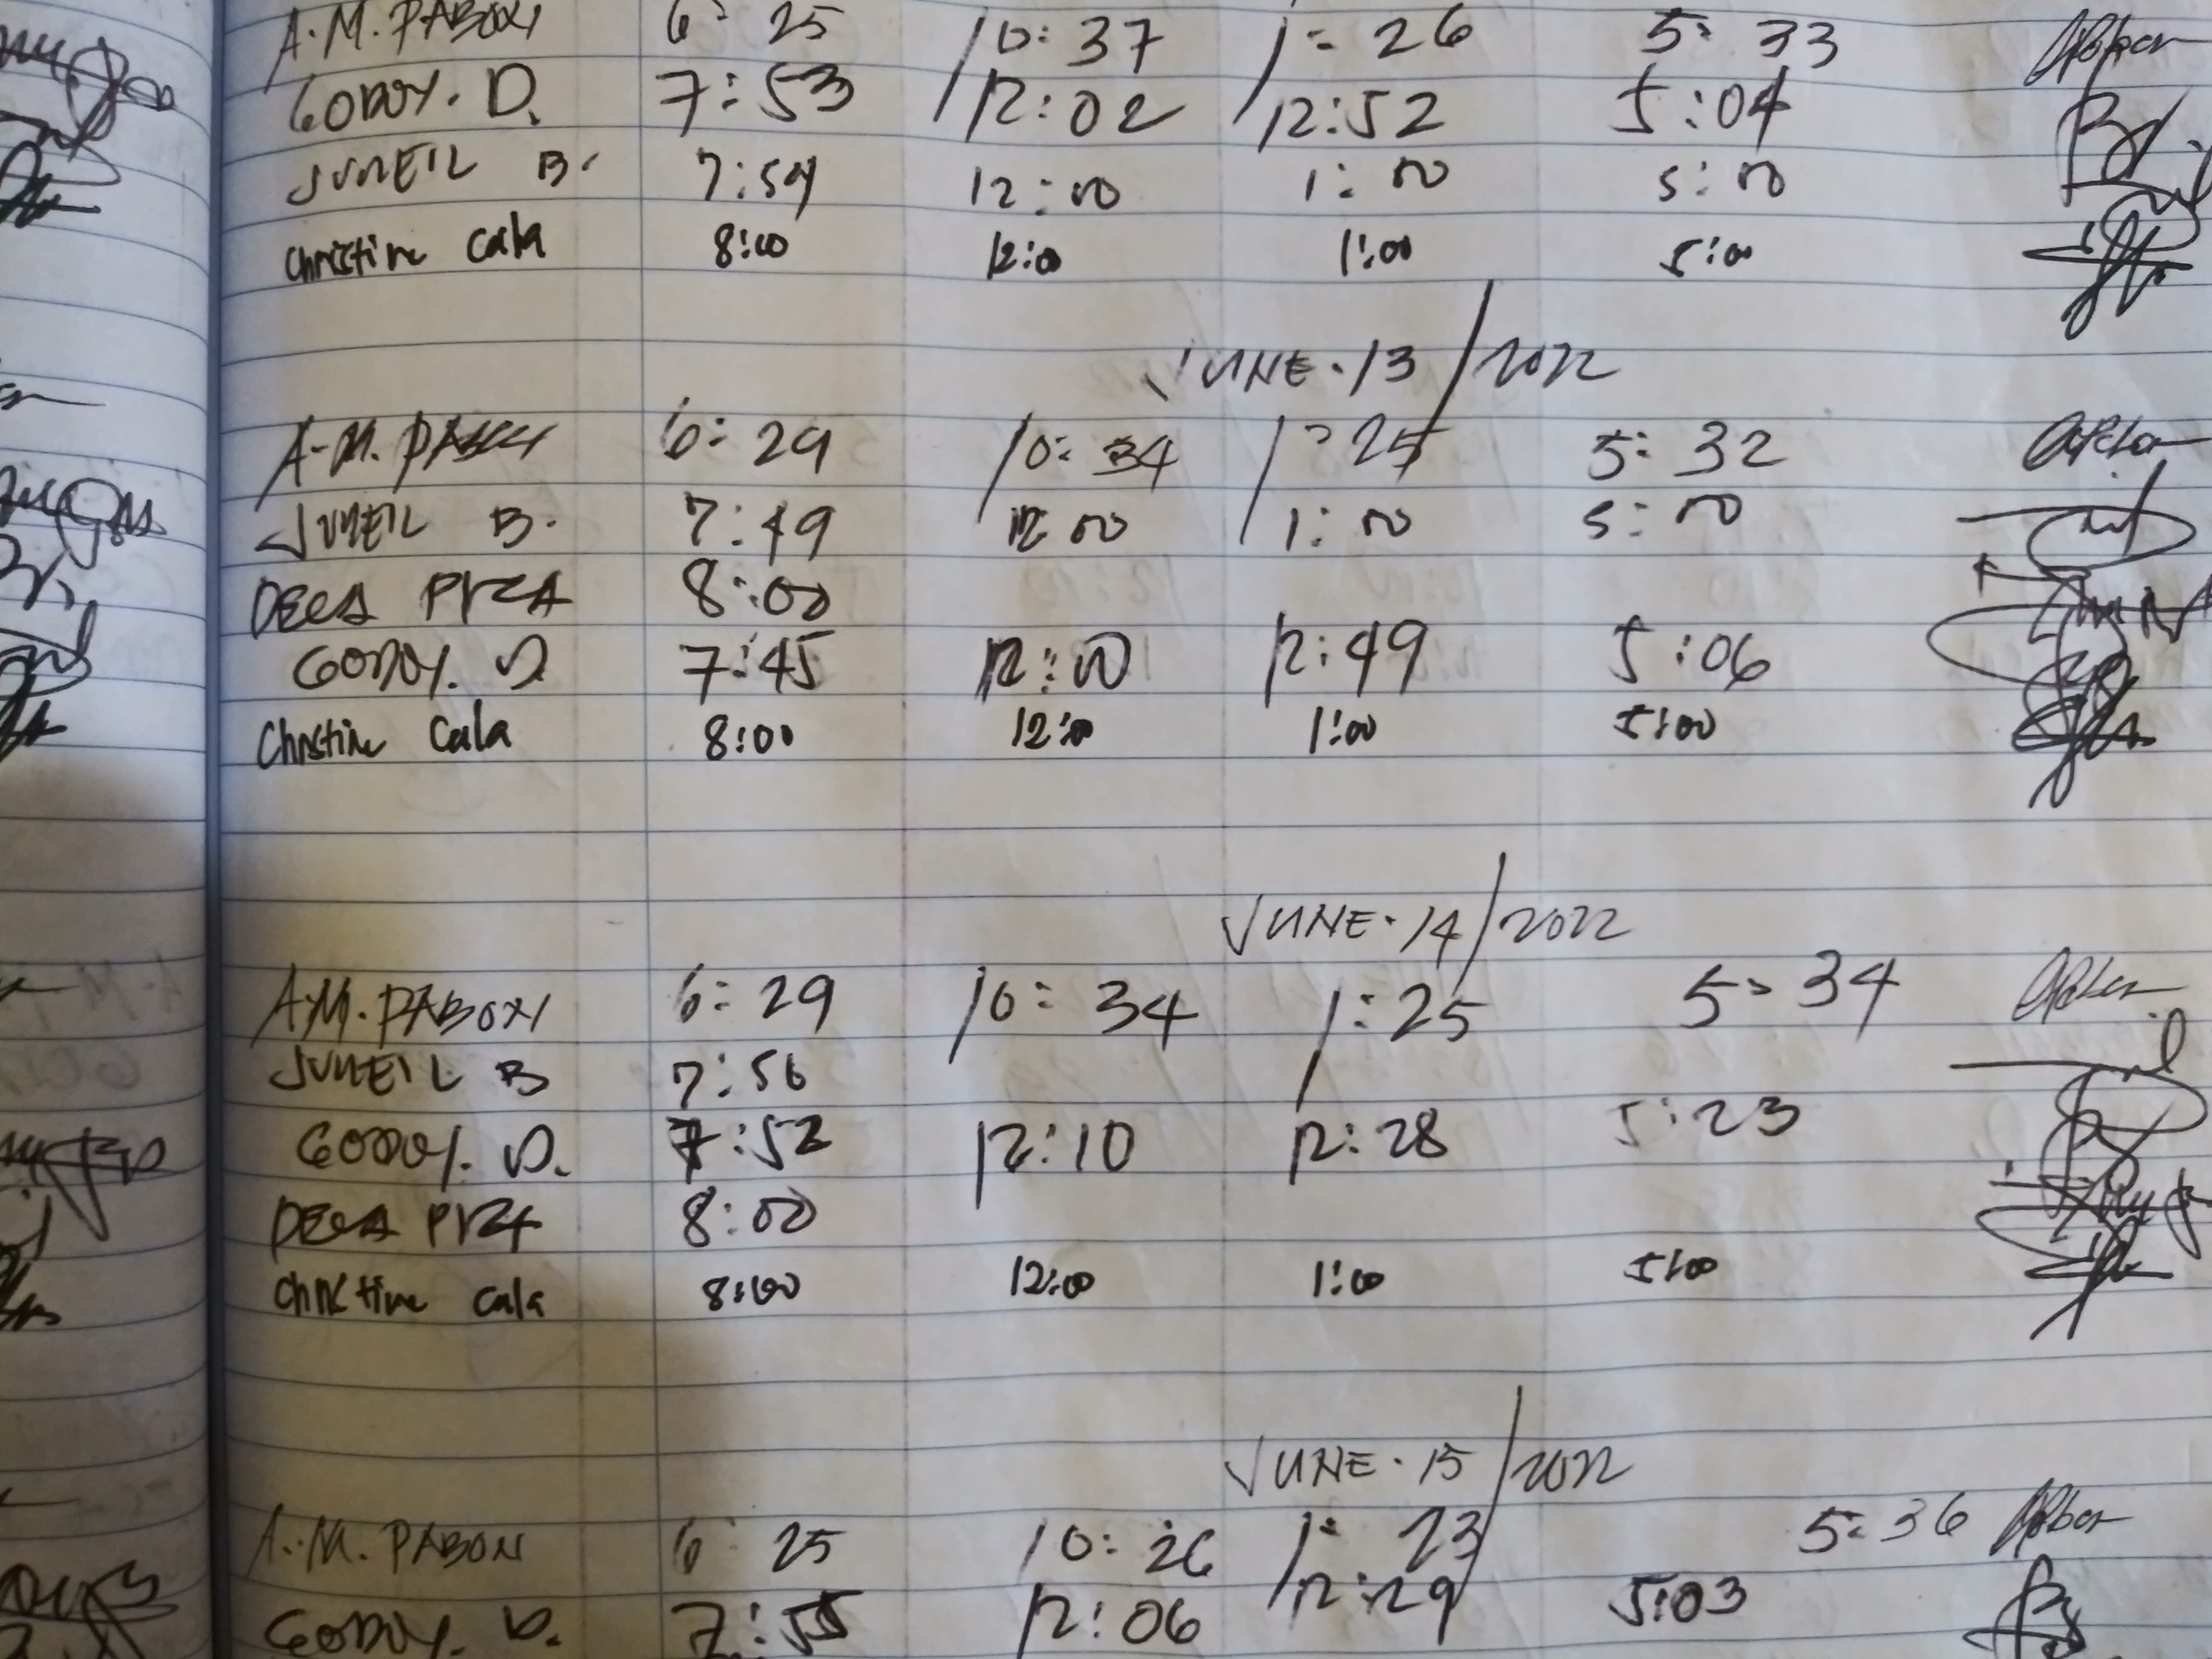 A.M. PABON 6: 25 10: 37 1: 26 5: 33
GODOY. D. 7:53 12:02 12:52 5:04
JUNEIL B. 7:54 12:00 1:00 5:00
Christine Cala 8:00 12:00 1:00 5:00
JUNE.13/2022
A.M. PABON 6: 29 10: 34 1: 25 5: 32
JUNEIL B. 7:49 12:00 1:00 5:00
8:00
GODOY. D. 7:45 12:00 12:49 5:06
Christine Cala 8:00 12:00 1:00 5:00
JUNE.14/2022
A.M. PABON 6: 29 10: 34 1:25 5: 34
JUNEIL B 7:56
GODOY. D. 7:52 12:10 12:28 5:23
8:00
Christine Cala 8:00 12:00 1:00 5:00
JUNE.15/2022
A.M. PABON 6: 25 10: 26 1: 23 5: 36
GODOY. D. 7:55 12:06 12:29 5:03